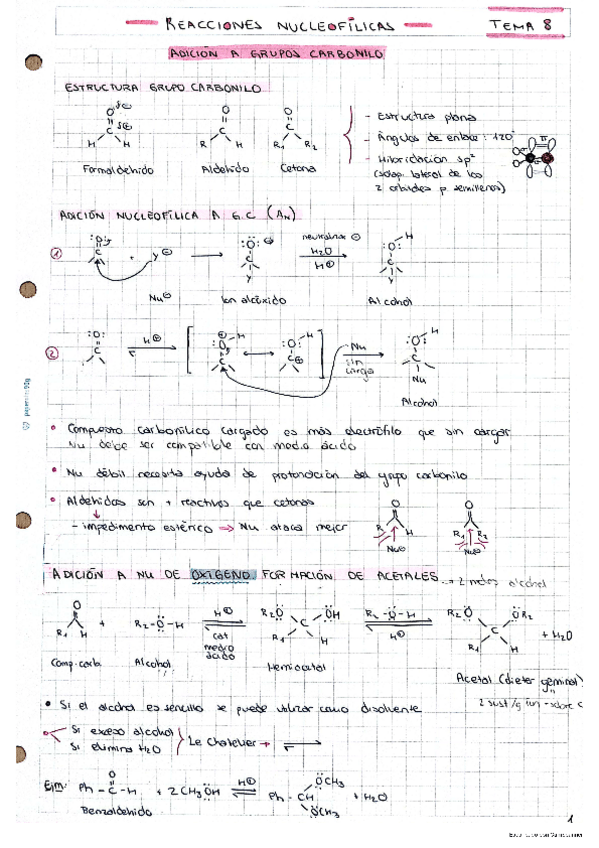 REACCIONES NUCLEOFÍLICAS
TEMA 8
ADICIÓN A GRUPOS CARBONILO
ESTRUCTURA GRUPO CARBONILO
Formaldehido
Aldehido
Cetona
- Estructura plana
- Ángulos de enlace: 120°
- Hibridación sp²
(solap. lateral de los
2 orbitales p semillenos)
ADICIÓN NUCLEOFÍLICA A G.C (AN)
1
+ Y⊖
neutralizar ⊖
H₂O
H⊕
Nu⊖
Ion alcóxido
Alcohol
2
H⊕
Nu
sin
carga
Alcohol
• Compuesto carbonílico cargado es más electrófilo que sin cargar
Nu debe ser compatible con medio ácido
• Nu débil necesita ayuda de protonación del grupo carbonilo
• Aldehidos son + reactivos que cetonas
- impedimento estérico ⇒ Nu ataca mejor
ADICIÓN A NU DE OXÍGENO FORMACIÓN DE ACETALES
→ 2 moles alcohol
R₁ H + R₂-O-H
H⊕
cat
medio
ácido
R₂O OH
R₁ H
R₂-O-H
H⊕
R₂O OR₂
R₁ H
+ H₂O
Comp. carb.
Alcohol
Hemiacetal
Acetal (dieter geminal)
• Si el alcohol es sencillo se puede utilizar como disolvente
• Si exceso alcohol
Si elimina H₂O
Le Chatelier →
Ejm: Ph-C-H + 2CH₃OH
H⊕
Ph-CH
OCH₃
OCH₃
+ H₂O
Benzaldehido
1